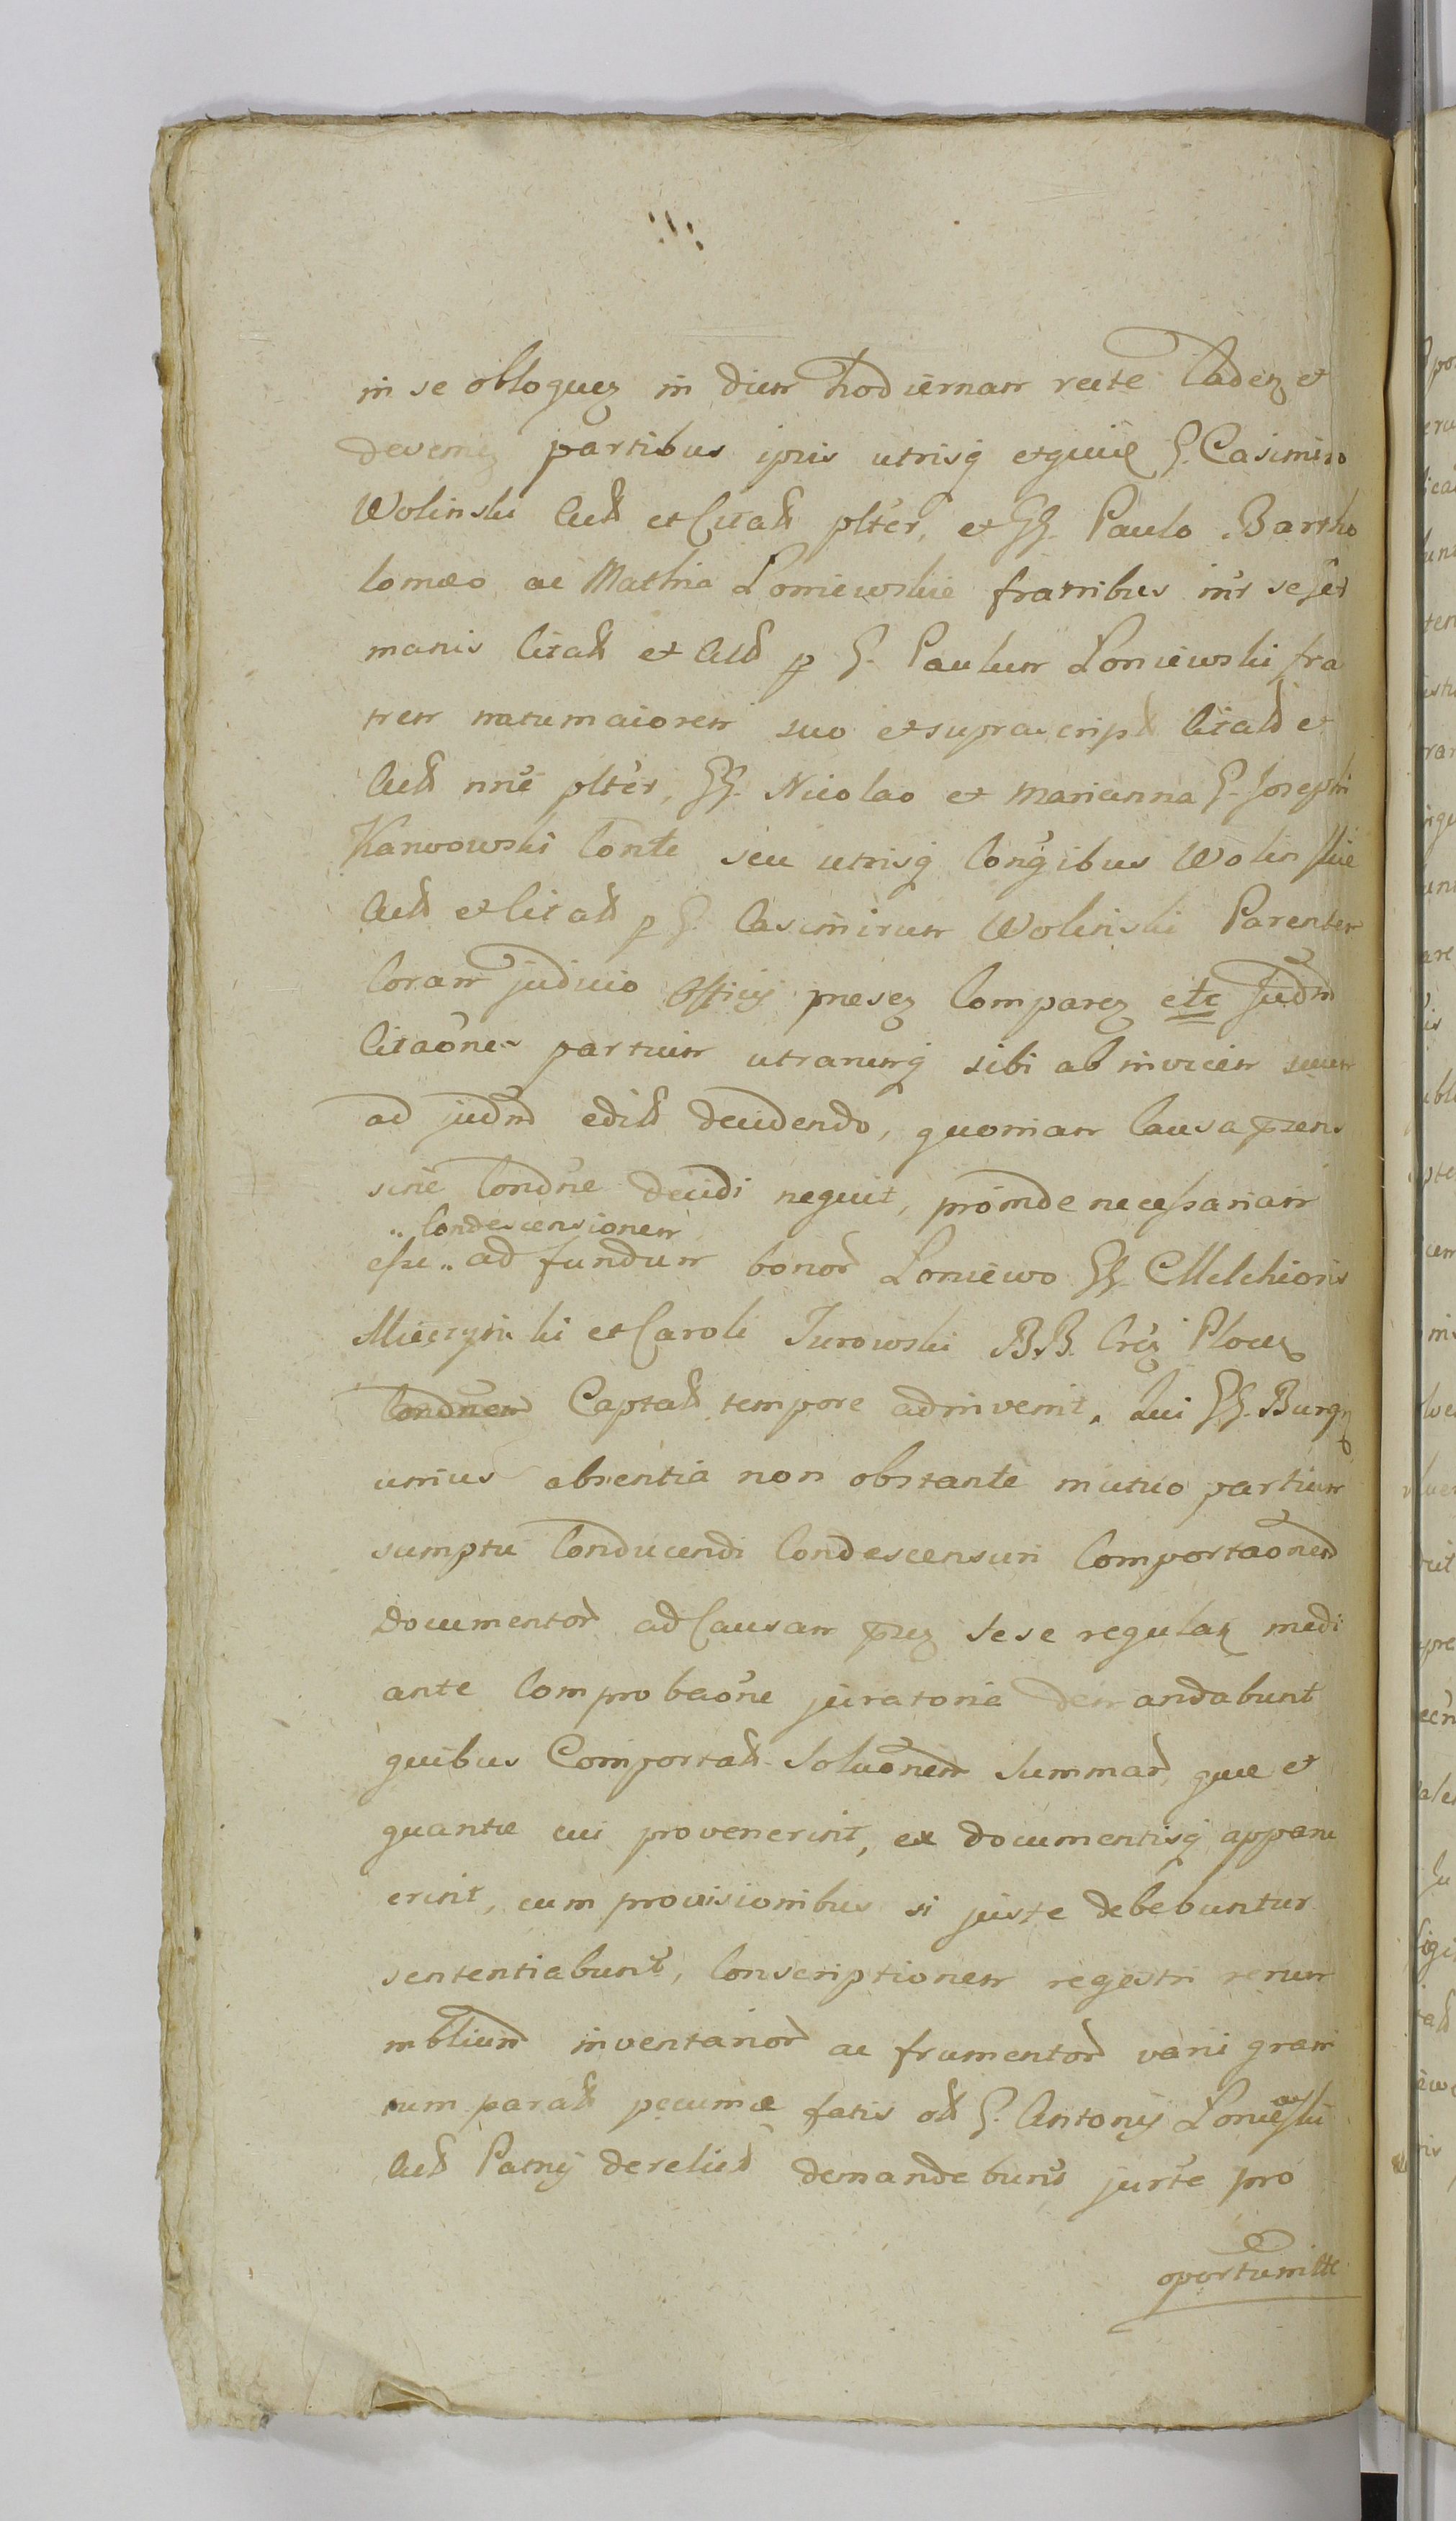 in se obloquen in diem hodiernam recte caden et
devenien partibus ipsis utrisq
Casimiro
Wolinski Act et Citat plter, et GG. Paulo, Bartho
lomæo ac Mathia Loniewskie fratribus intr se ger
manis Citat et Act p G. Paulum Loniewski fra
trem natu maiorem suo et suprascript Citat et
Act nne plter, GG. Nicolao et Marianna G. Josephi
Karwowski Conte seu utrisq Congibus Wolinskie
Act et Citat p G. Casimirum Wolinski Parentem
Coram judicio Officij presen Comparen etc Judm
Citaones partium utrarumq sibi ab invicem suum
ad judm edit decidendo, quoniam Causa prens
sine Condne decidi nequit, proinde necessariam
Condescensionem
esse ad fundum bonor Loniewo GG. Melchioris
Mieczynski et Caroli Jurowski B.B. Plocen
Condnem Captat tempore adinvenit, Qui GG. Burg
unius absentia non obstante mutuo partium
sumptu Conducendi Condescensuri Comportaonem
documentor ad Causam pren sese regulan medi
ante Comprobaone juratoria demandabunt
quibus Comportat Soluonem Summar, quæ et
quantæ cui provenerint, ex documentisq apparu
erint, cum provisionibus si juste debebuntur
sententiabunt, Conscriptionem regestri rerum
mblium inventarior ac frumentor varii grani
tum parat pecuniæ fatis olt G. Antonij Loniewski
Act Patrij derelict demandabunt jurte pro
oportunitte